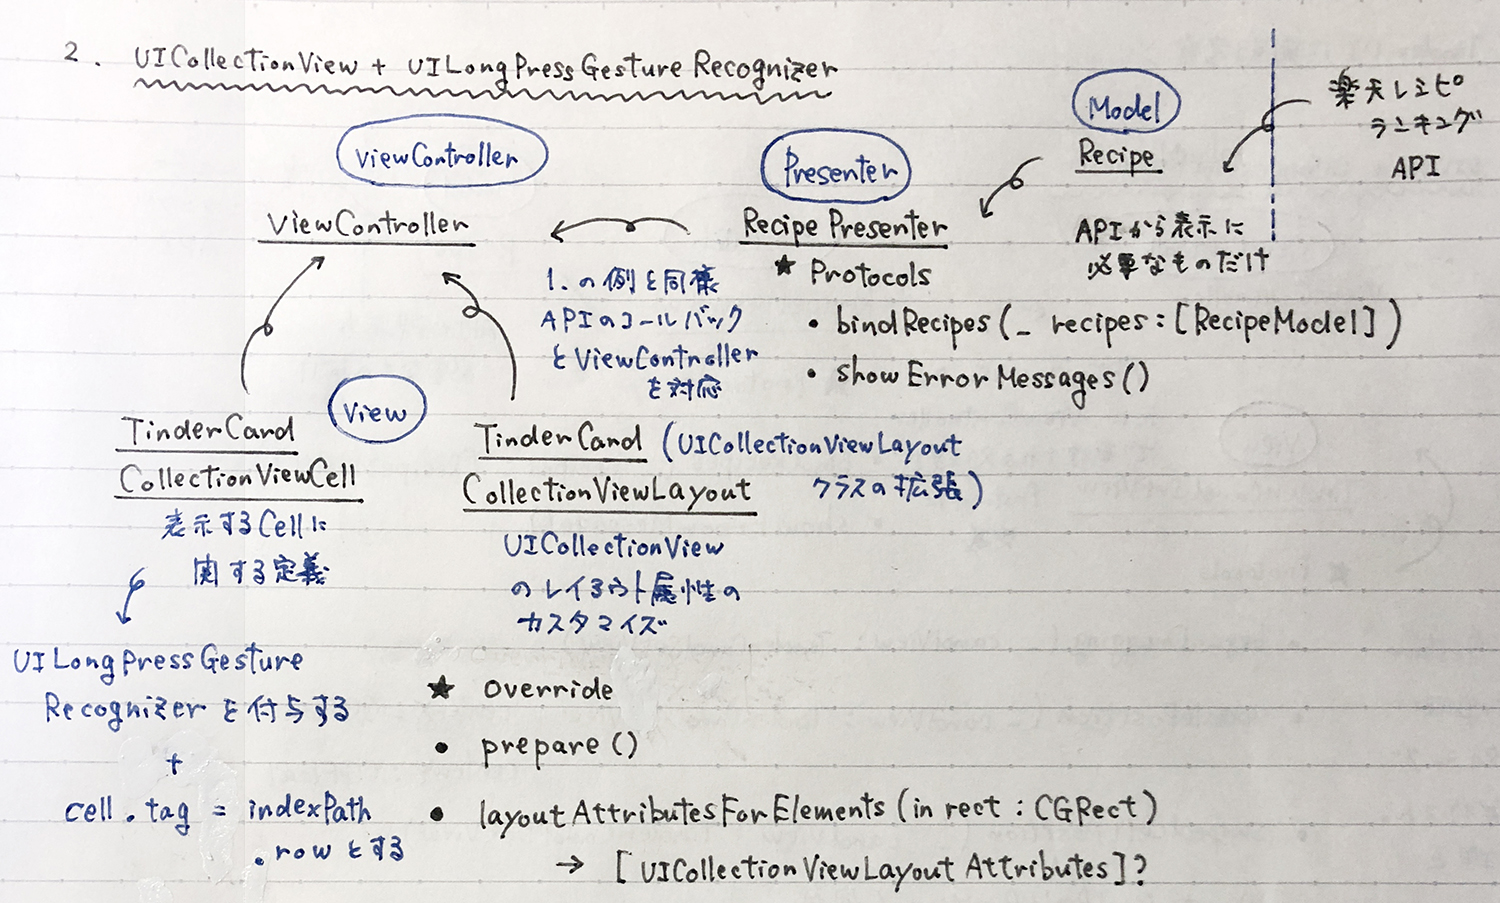 2. UICollectionView + UILongPressGestureRecognizer
Model
Recipe
APIから表示に
必要なものだけ
楽天レシピ
ランキング
API
Presenter
Recipe Presenter
★ Protocols
• bindRecipes(_ recipes: [RecipeModel])
• showErrorMessages()
ViewController
ViewController
1. の例と同様
APIのコールバック
とViewController
を対応
View
TinderCard
CollectionViewCell
表示するCellに
関する定義
UILongPressGesture
Recognizerを付与する
+
cell.tag = indexPath
.rowとする
TinderCard (UICollectionViewLayout
クラスの拡張)
CollectionViewLayout
UICollectionView
のレイアウト属性の
カスタマイズ
★ override
• prepare()
• layoutAttributesForElements(in rect: CGRect)
→ [UICollectionViewLayoutAttributes]?